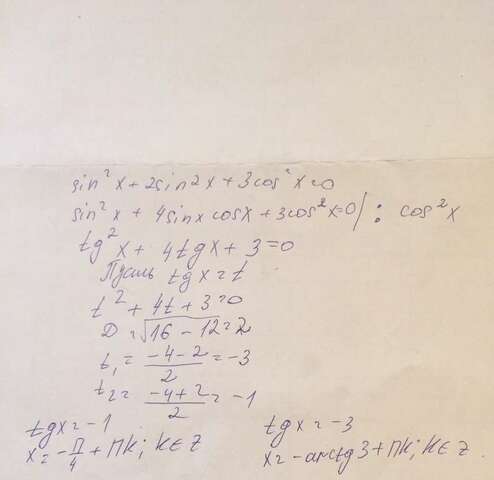 sin²x + 2sin2x + 3cos²x = 0
sin²x + 4sinx cosx + 3cos²x = 0 / : cos²x
tg²x + 4tgx + 3 = 0
Пусть tgx = t
t² + 4t + 3 = 0
D = √16 - 12 = 2
t₁ = (-4 - 2)/2 = -3
t₂ = (-4 + 2)/2 = -1
tgx = -1
x = -П/4 + ПK; K ∈ Z
tgx = -3
x = -arctg3 + ПK; K ∈ Z